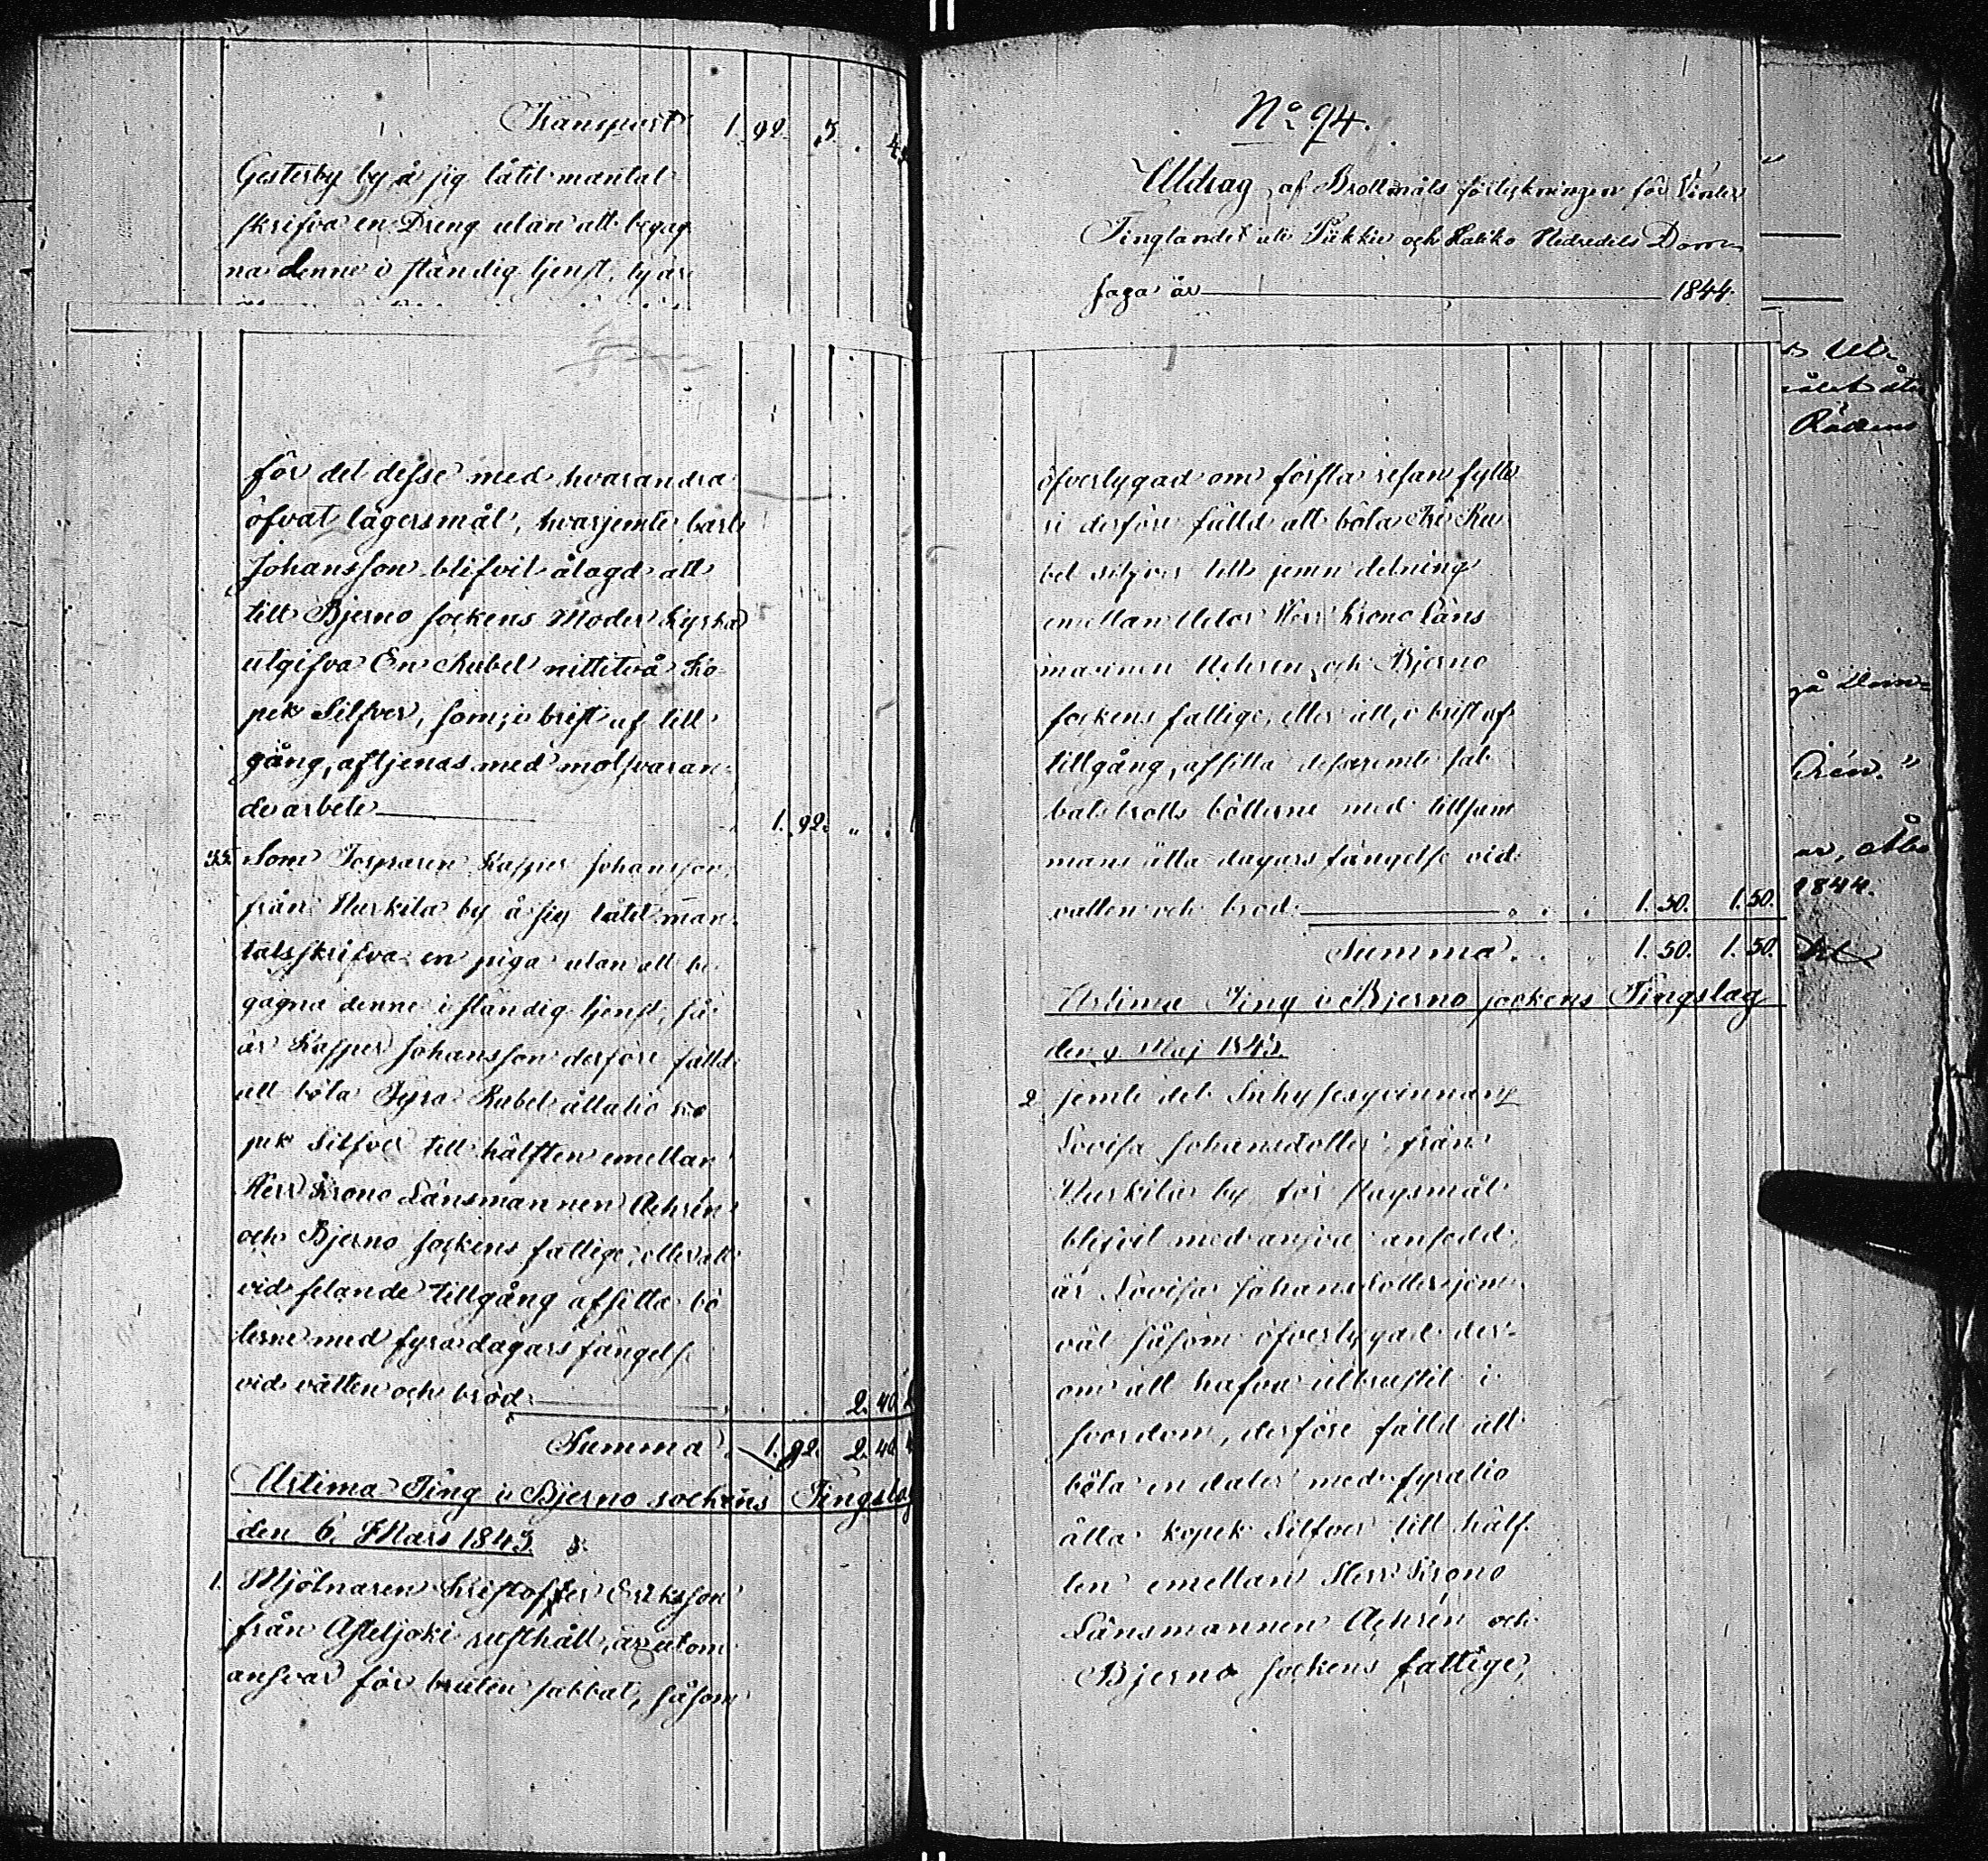 Transport 1. 92. 3. 4
Gesterby by å sig låtit mantal
skrifva en Dreng utan att begag
na denne i ständig tjenst, ty är
för det desse med hvarandra
öfvat lägersmål, hvarjemte
Johansson blifvit ålagd att
till Bjerno sockens Moder Kyrka
utgifva En Rubel nittitvå Ko
pek Silfver, som, i brist af till
gång, aftjenas med motsvaran-
de arbete 1. 92. " .
35. Som Torparen Kasper Johansson
från Hurkila by å sig låtit man-
talsskrifva en piga utan att be
gagna denne i ständig tjenst, så
är Kasper Johansson derföre fälld
att böta Fyra Rubel åttatio ko
pek Silfver till hälften emellan
Herr Krono Länsmannen Achrén
och Bjerno sockens fattige, eller att
vid felande tillgång afsitta bö
terne med fyra dagars fängelse
vid vatten och bröd 2. 40.
Summa 1. 92. 2. 40
Urtima Ting i Bjerno sockens Tingslag
den 6. Mars 1843.
1. Mjölnaren Kristoffer Eriksson
från Asteljoki rusthåll, är utom
ansvar för bruten sabbat, såsom
No 94.
Utdrag af Brottmåls förteckningen för Vinter
Tinglandet uti Piikkie och Haliko Häradets Dom
saga år 1844.
öfvertygad om första resan fylle
ri derföre fälld att böta Tre Ru
bel silfver till jemn delning
emellan Actor Herr Krono Läns
mannen Achren, och Bjerno
sockens fattige, eller att, i brist af
tillgång, afsitta desse jemte sab
bats brotts böterne med tillsam
mans åtta dagars fängelse vid
vatten och bröd. " . . 1. 50. 1. 50.
Summa . . . 1. 50. 1. 50.
Urtima Ting i Bjerno sockens Tingslag
den 9 Maj 1843.
2 Jemte det Inhysesqvinnan
Lovisa Johansdotter från
Hurkila by för
blifvit med ansvar ansedd,
är Lovisa Johansdotter jem
väl såsom öfvertygad der-
om att hafva utbrustit i
svordom, derföre fälld att
böta en daler med fyratio
åtta kopek Silfver till hälf
ten emellan Herr Krono
Länsmannen Achrén och
Bjerno sockens fattige,
Rådens
1844.